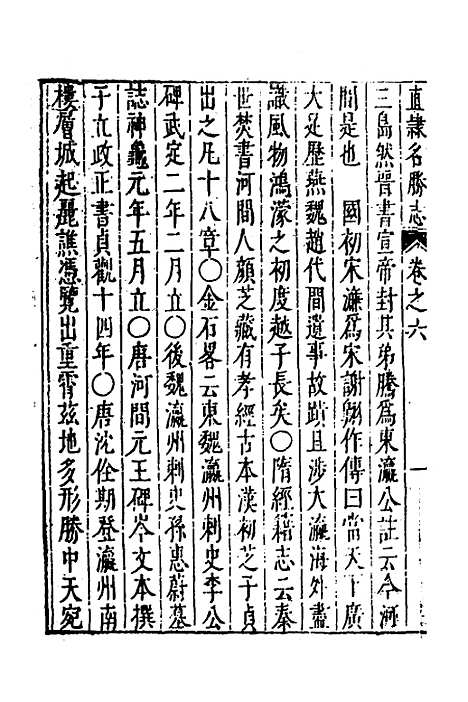 直隸名勝志 卷之六 一
三島然晉書宣帝封其弟騰爲東瀛公註云今河
間是也 國初宋濂爲宋謝翱作傳曰當天下廣
大足歷燕魏趙代間遺事故蹟且涉大瀛海外盡
識風物鴻濛之初度越子長矣○隋經籍志云秦
世焚書河間人顏芝藏有孝經古本漢初芝子貞
出之凡十八章○金石畧云東魏瀛州刺史李公
碑武定二年二月立○後魏瀛州刺史孫惠蔚墓
誌神龜元年五月立○唐河間元王碑岑文本撰
于立政正書貞觀十四年○唐沈佺期登瀛州南
樓層城起麗譙憑覽出重霄茲地多形勝中天宛